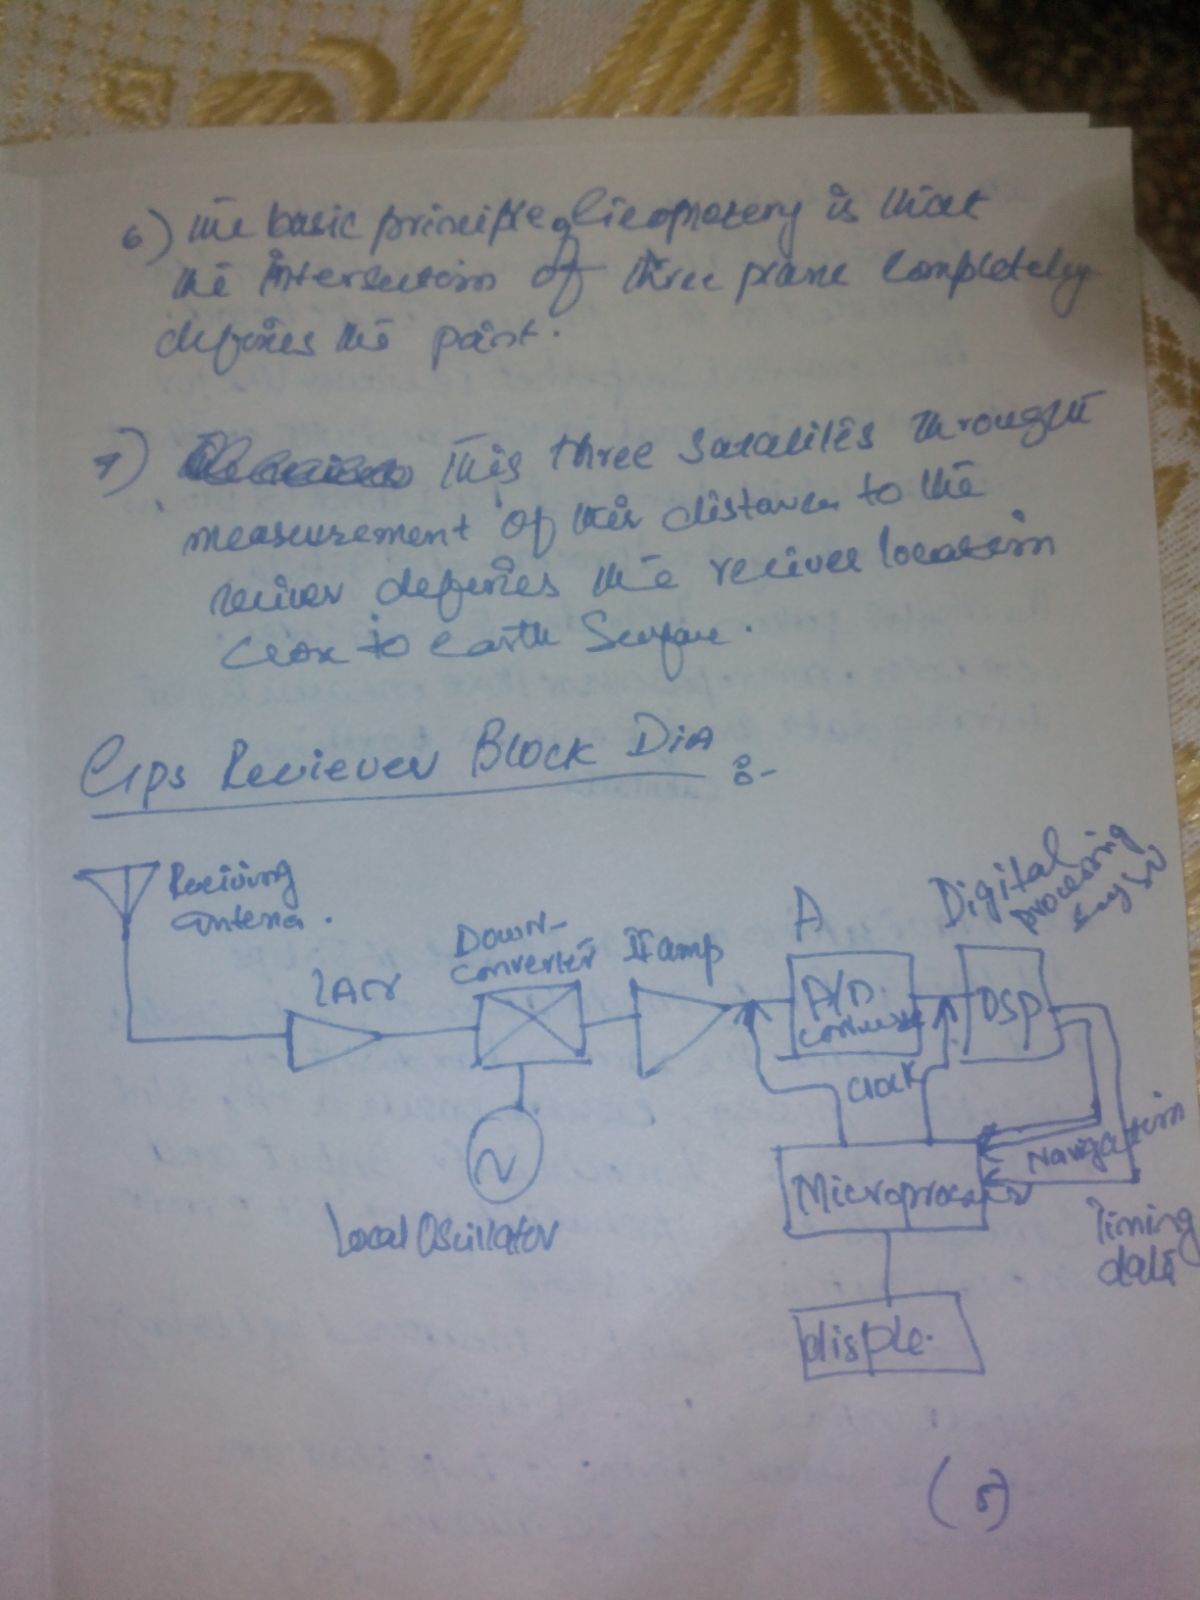 6) The basic principle of Geometery is that
the intersection of three plane completely
defines the point.
7) This three Satalites throught
measurement of their distance to the
reciver defines the reciver location
Close to earth Surface.
Gps Reciever Block DiA :-
Reciving
antena.
LAN
Down-
converter
IF amp
A
A/D
converter
Digital
processing
DSP
Clock
Local Oscillator
Microprocesser
Navigation
Timing
data
disple.
(5)